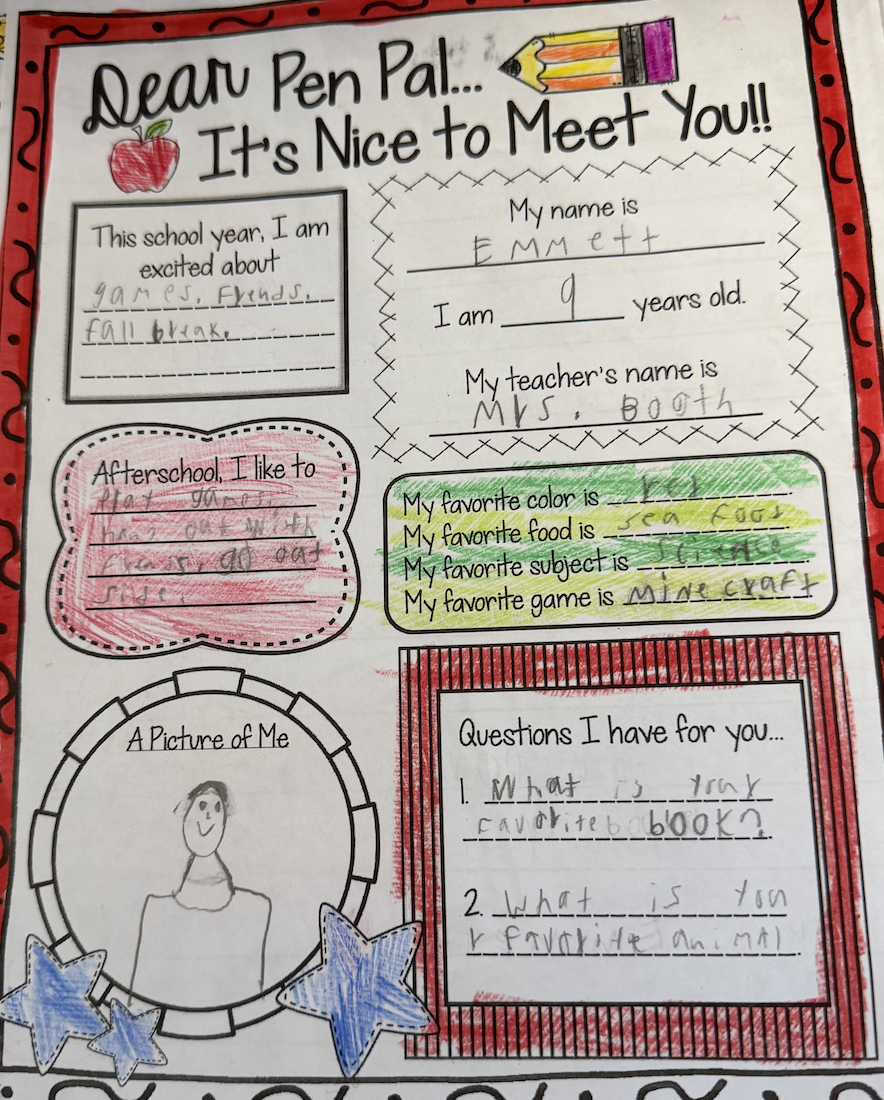 Dear Pen Pal...
It's Nice to Meet You!!
This school year, I am
excited about
games. Frends.
fall break.
My name is
Emmett
I am 9 years old.
My teacher's name is
Mrs. Booth
Afterschool, I like to
Play games.
hang out with
frends, go out
side.
My favorite color is red
My favorite food is sea food
My favorite subject is science
My favorite game is minecraft
A Picture of Me
Questions I have for you...
1. What is your
favorite book?
2. What is you
r favorite animal